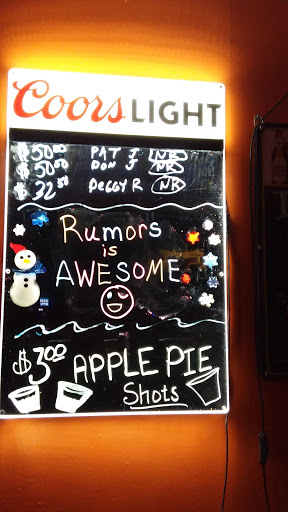 Coors LIGHT
$50.00 PAT J NR
$50.00 DON J NR
$32.50 PEGGY R NR
Rumors
is
AWESOME
$3.00 APPLE PIE
Shots